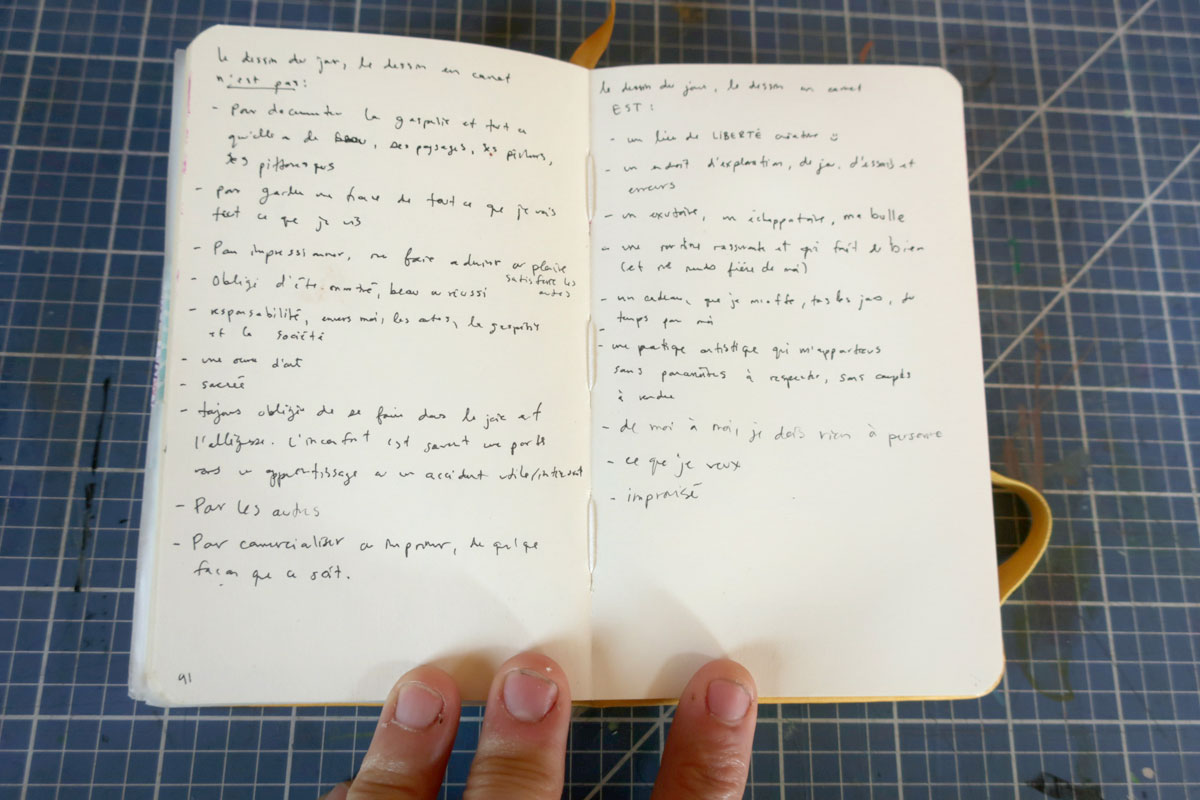 le dessin du jour, le dessin en carnet
n'est pas:
- Pour documenter la gaspésie et tout ce
qu'elle a de beau, ses paysages, ses pêcheurs,
ses pittoresques
- pour garder une trace de tout ce que je vois
tout ce que je vis
- Pour impressionner, me faire admirer or plaire
satisfaire les
autres
- obligé d'être montré, beau ou réussi
- responsabilité, envers moi, les autres, la gaspésie
et la société
- une œuvre d'art
- sacrée
- toujours obligé de se faire dans la joie et
l'allégresse. L'inconfort est souvent une porte
vers un apprentissage ou un accident utile/intéressant
- Pour les autres
- Pour commercialiser ou imprimer, de quelque
façon que ce soit.
91
le dessin du jour, le dessin en carnet
EST :
- un lieu de LIBERTÉ créative
- un endroit d'exploration, de jeu, d'essais et
erreurs
- un exutoire, un échappatoire, ma bulle
- une routine rassurante et qui fait du bien
(et me rends fière de moi)
- un cadeau, que je m'offre, tous les jours, du
temps pour moi
- une pratique artistique qui m'appartiens
sans paramètres à respecter, sans comptes
à rendre
- de moi à moi, je dois rien à personne
- ce que je veux
- improvisé